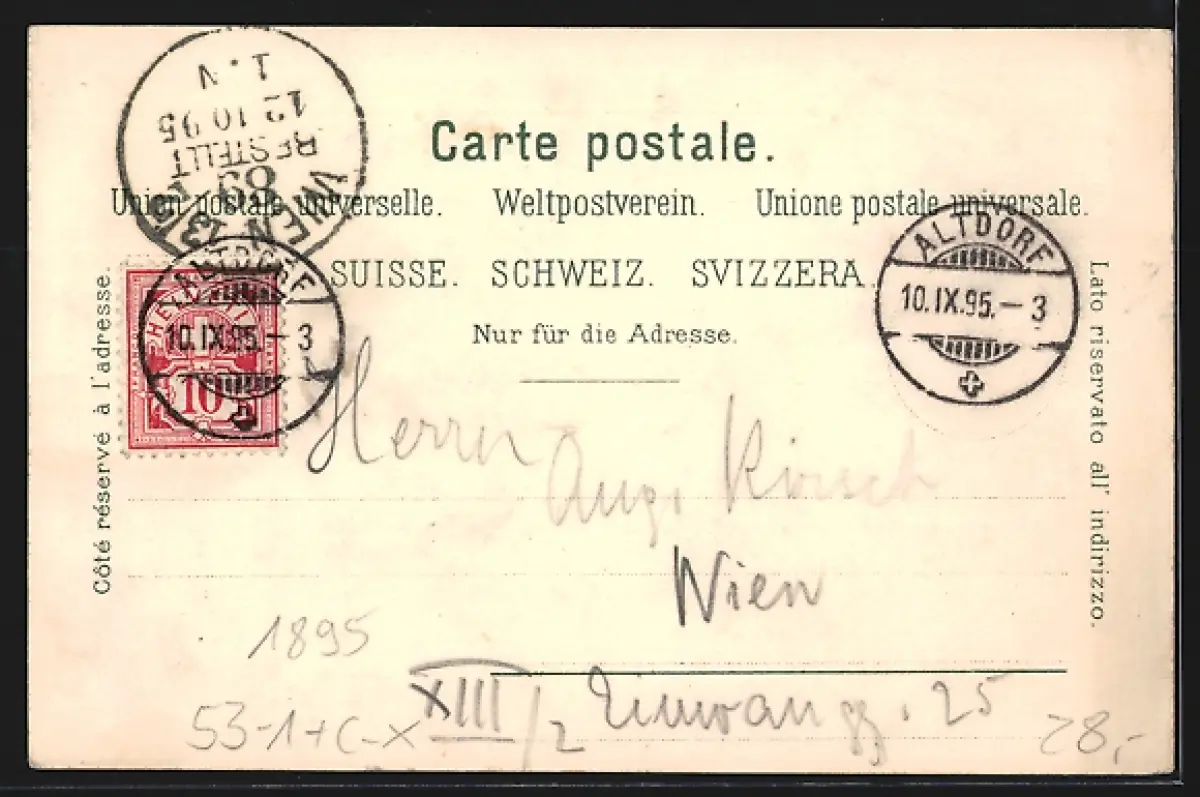 1. V
12 10 95
BESTELLT
WIEN 13
89
Carte postale.
Union postale universelle. Weltpostverein. Unione postale universale.
SUISSE. SCHWEIZ. SVIZZERA.
Nur für die Adresse.
Côté réservé à l'adresse.
Lato riservato all' indirizzo.
ALTDORF
10.IX.95.–3
ALTDORF
10.IX.95.–3
HELVETIA
10
Herrn
Aug. Kirsch
Wien
XIII/2 25
1895
53-1+C-X
28,-